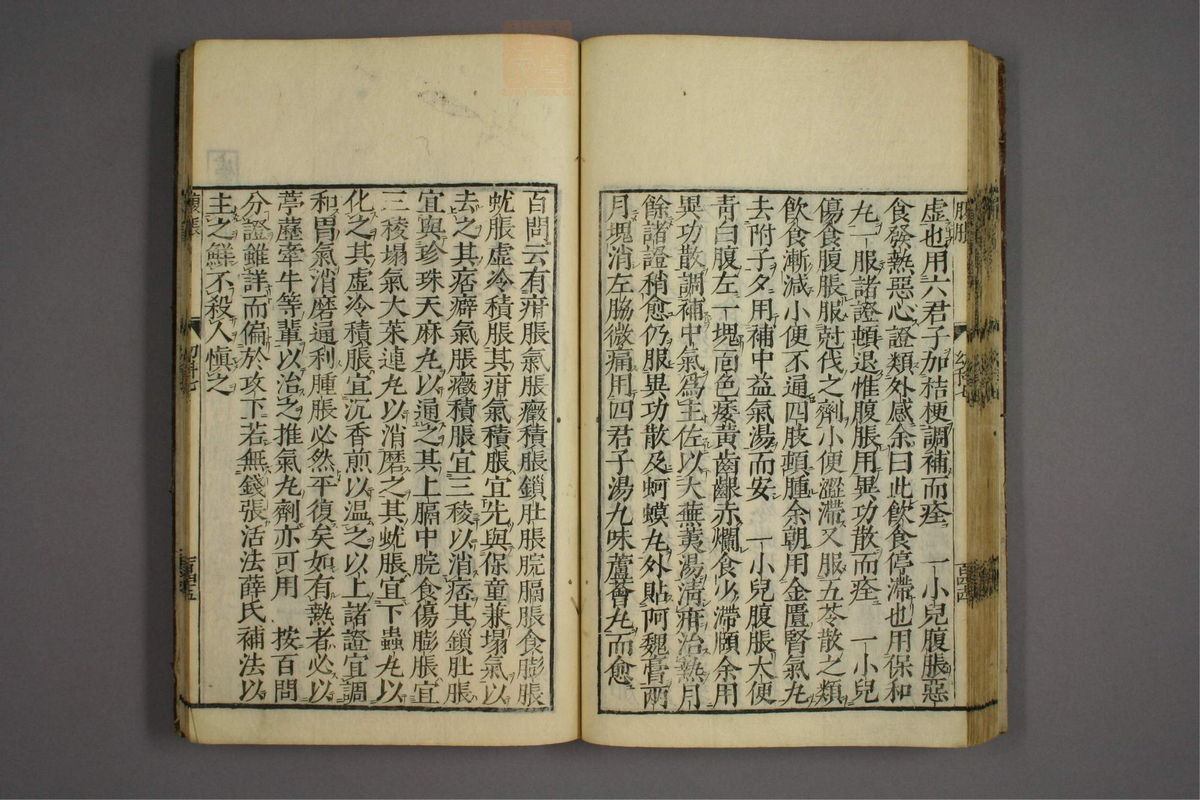 虛也用六君子加桔梗調補而痊　一小兒腹脹惡
食發熱惡心證類外感余曰此飲食停滯也用保和
丸一服諸證頓退惟腹脹用異功散而痊　一小兒
傷食腹脹服尅伐之劑小便澀滯又服五苓散之類
飲食漸減小便不通四肢頓腫余朝用金匱腎氣丸
去附子夕用補中益氣湯而安　一小兒腹脹大便
青白腹左一塊面色痿黃齒齦赤爛食少滯頤余用
異功散調補中氣爲主佐以大蕪荑湯清疳治熱月
餘諸證稍愈仍服異功散及蚵蟆丸外貼阿魏膏兩
月塊消左脇微痛用四君子湯九味蘆薈丸而愈
百問云有疳脹氣脹癥積脹鎖肚脹脘膈脹食膨脹
蚘脹虛冷積脹其疳氣積脹宜先與保童兼塌氣以
去之其痞癖氣脹癥積脹宜三稜以消痞其鎖肚脹
宜與珍珠天麻丸以通之其上膈中脘食傷膨脹宜
三稜塌氣大茱連丸以消磨之其蚘脹宜下蟲丸以
化之其虛冷積脹宜沉香煎以溫之以上諸證宜調
和胃氣消磨通利腫脹必然平復矣如有熱者必以
葶藶牽牛等輩以治之推氣丸劑亦可用　按百問
分證雖詳而偏於攻下若無錢張活法薛氏補法以
主之鮮不殺人愼之